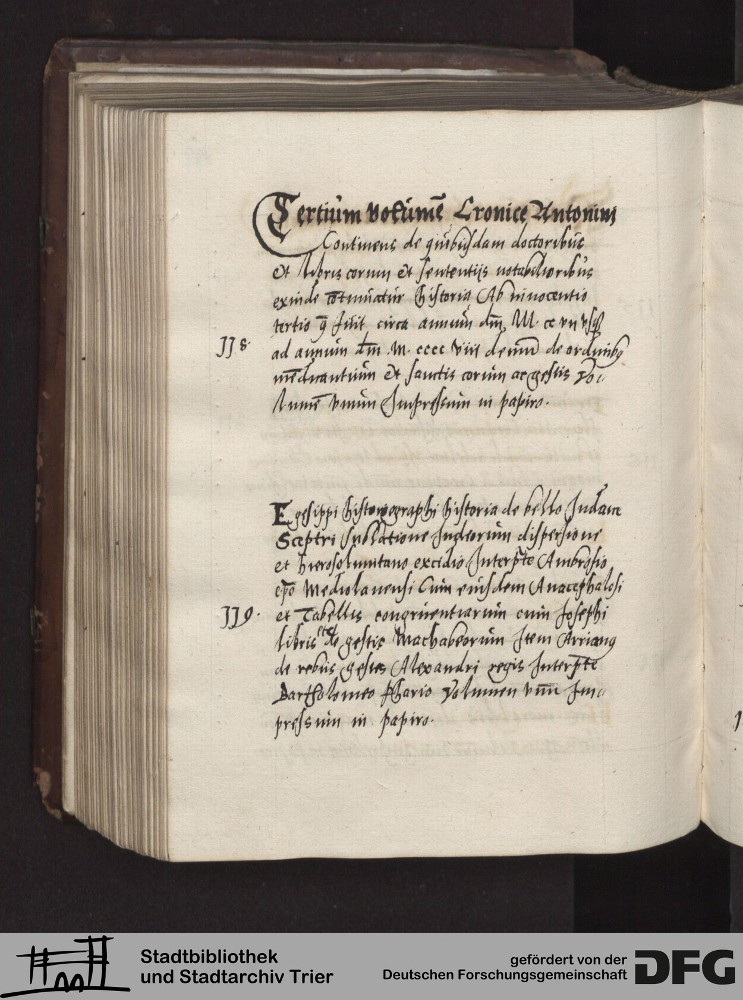 Tertium volumē Cronice Antonini
Continens de quibusdam doctoribus
et libris eorum et sententijs notabilioribus
exinde cōtinuatur historia Ab innocentio
tertio q̄ fuit circa annum dm̄ M cc vn vsq̄
118. ad annum dm̄ . M . cccc viii demū de ordinibꝫ
mēdicantium et sanctis eorum ac gestis vo-
lumē vnum Impressum in papiro.
Egesippi historiographi historia de bello Iudaico
Sceptri sublatione Iudeorum dispersione
et hierosolimitano excidio Interp̄te Ambrosio
ep̄o Mediolanensi Cum eiusdem Anacephalesi
119. et Tabellis congruentiarum cum Josephi
libris de gestis Machabeorum Item Arrianus
de rebus gestis Alexandri regis Interp̄te
Bartholomeo ffacio Volumen vnū Im-
pressum in papiro.
Stadtbibliothek
und Stadtarchiv Trier
gefördert von der
Deutschen Forschungsgemeinschaft
DFG